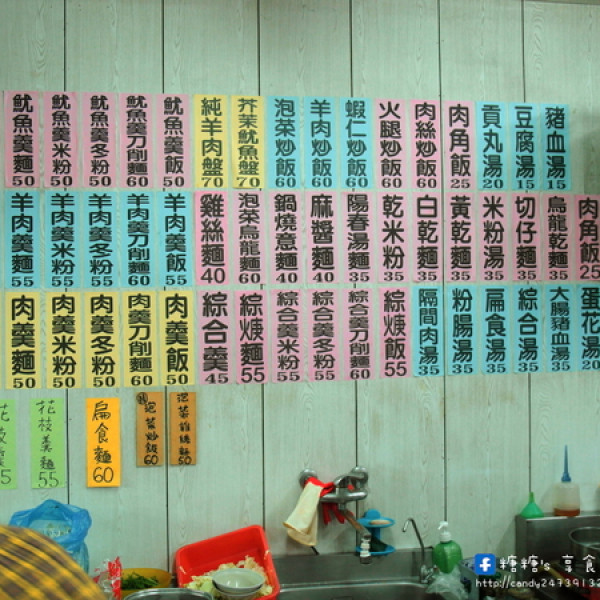 魷魚羹麵 50
魷魚羹米粉 50
魷魚羹冬粉 50
魷魚羹刀削麵 60
魷魚羹飯 50
純羊肉盤 70
芥茉魷魚盤 70
泡菜炒飯 60
羊肉炒飯 60
蝦仁炒飯 60
火腿炒飯 60
肉絲炒飯 60
肉角飯 25
貢丸湯 20
豆腐湯 15
豬血湯 15
羊肉羹麵 55
羊肉羹米粉 55
羊肉羹冬粉 55
羊肉羹刀削麵 60
羊肉羹飯 55
雞絲麵 40
泡菜烏龍麵 60
鍋燒意麵 40
麻醬麵 40
陽春湯麵 35
乾米粉 35
白乾麵 35
黃乾麵 35
米粉湯 35
切仔麵 35
烏龍乾麵 35
肉角飯 25
肉羹麵 50
肉羹米粉 50
肉羹冬粉 50
肉羹刀削麵 60
肉羹飯 50
綜合羹 45
綜焿麵 55
綜合羹米粉 55
綜合羹冬粉 55
綜合羹刀削麵 60
綜焿飯 55
隔間肉湯 35
粉腸湯 35
扁食湯 35
綜合湯 35
大腸豬血湯 35
蛋花湯 20
花枝羹麵 55
扁食麵 60
泡菜炒飯 60
泡菜雞絲麵 50
糖糖's 享食
http://candy24739132